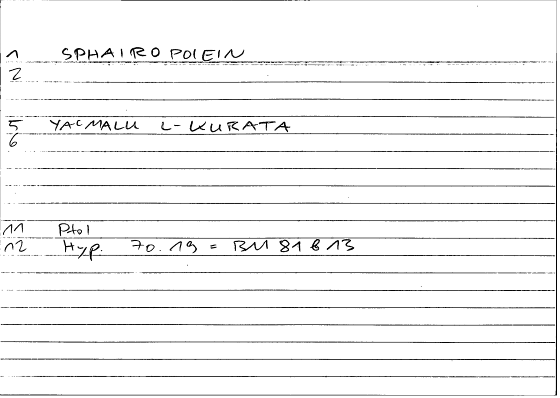 1 SPHAIROPOIEIN
2
5 YACMALU L-KURATA
6
11 Ptol
12 Hyp. 70.19 = BM 81 b 13